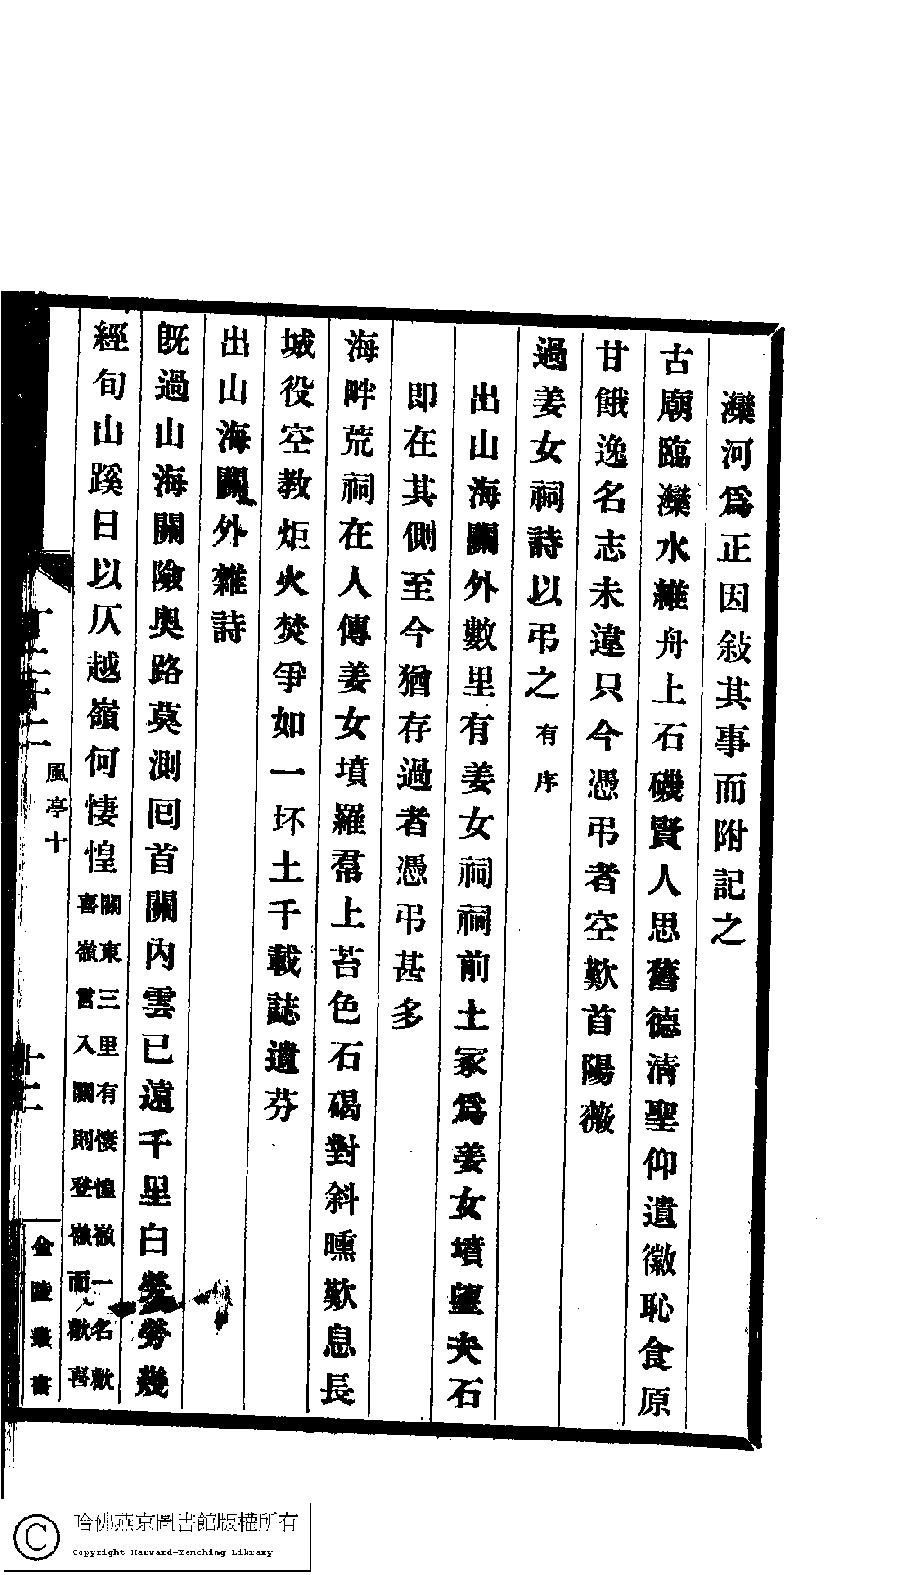 灤河爲正因敍其事而附記之
古廟臨灤水維舟上石磯賢人思舊德淸聖仰遺徽恥食原
甘餓逸名志未違只今憑弔者空歎首陽薇
過姜女祠詩以弔之有序
出山海關外數里有姜女祠祠前土冢爲姜女墳望夫石
即在其側至今猶存過者憑弔甚多
海畔荒祠在人傳姜女墳羅帬上苔色石碣對斜曛歎息長
城役空教炬火焚爭如一坏土千載誌遺芬
出山海關外雜詩
旣過山海關險奧路莫測囘首關內雲已遠千里白勞勞幾
經旬山蹊日以仄越嶺何悽惶
關東三里有悽惶嶺一名歡
喜嶺言入關則登嶺而歡喜
風亭十
十二
金陵叢書
哈佛燕京圖書館版權所有
Copyright Harvard-Yenching Library